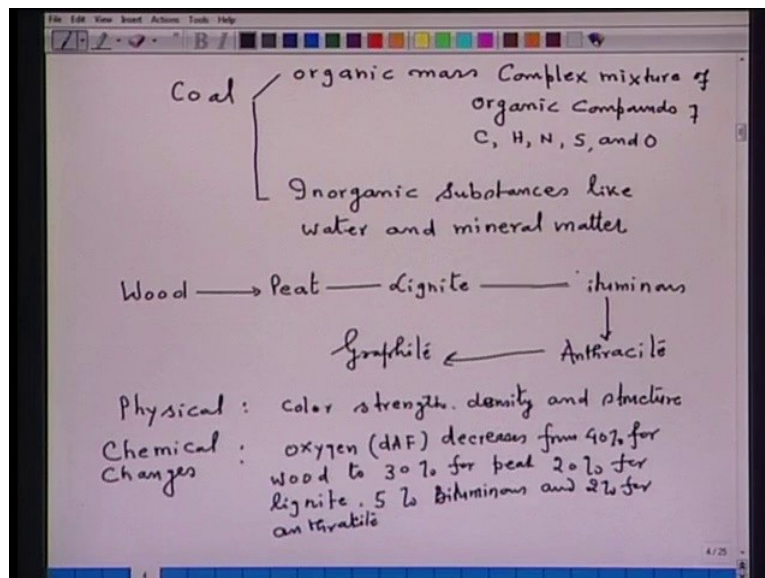 File Edit View Insert Actions Tools Help
Coal organic mass Complex mixture of
organic Compounds of
C, H, N, S, and O
Inorganic substances like
water and mineral matter
Wood Peat Lignite ituminous
Graphite Anthracite
Physical : Color strength. density and structure
Chemical : oxygen (dAF) decreases from 40% for
Changes wood to 30% for peat 20% for
lignite. 5% Bituminous and 2% for
anthracite
4/25